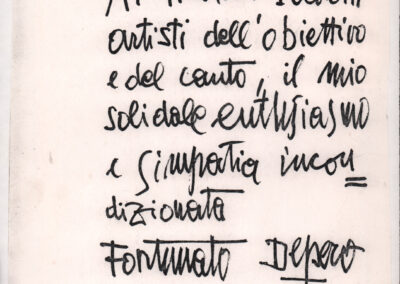 artisti dell'obiettivo
e del canto, il mio
solidale enthusiasmo
e simpatia incon=
dizionata
Fortunato Depero